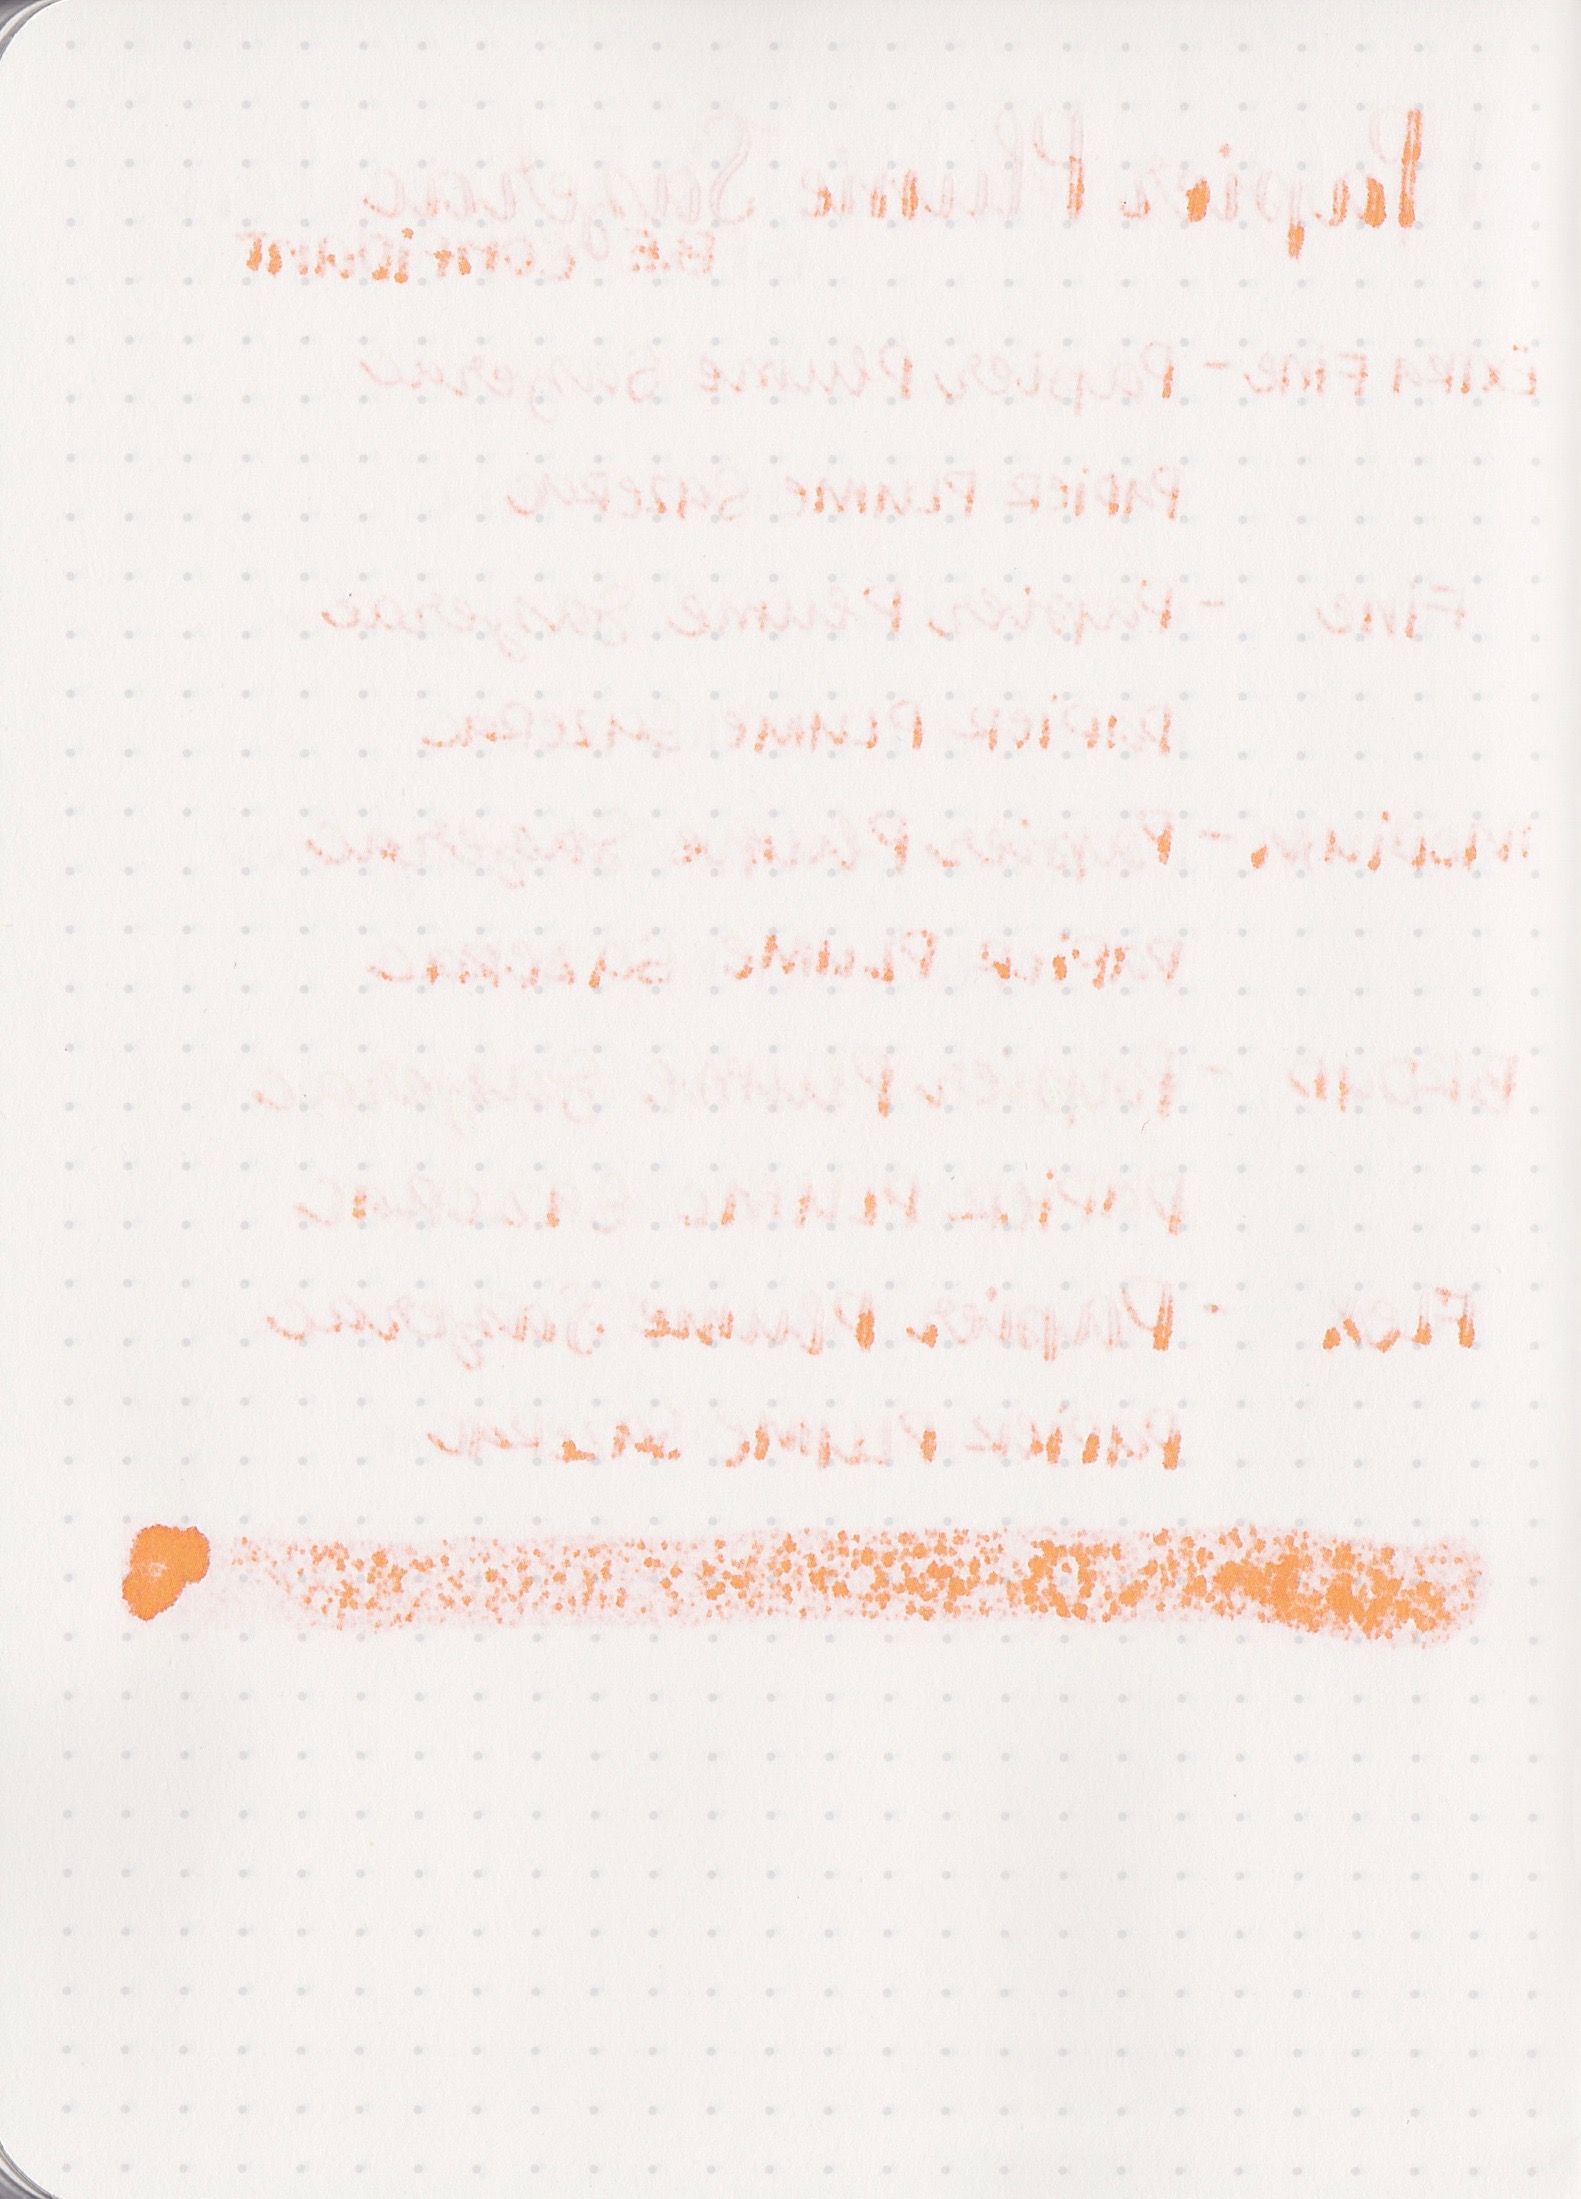 Papier Plume Sazerac
CONFIDANT
EXTRA FINE - Papier Plume Sazerac
PAPIER PLUME SAZERAC
FINE - Papier Plume Sazerac
PAPIER PLUME SAZERAC
MEDIUM - Papier Plume Sazerac
PAPIER PLUME SAZERAC
BROAD - Papier Plume Sazerac
PAPIER PLUME SAZERAC
FLEX - Papier Plume Sazerac
PAPIER PLUME SAZERAC